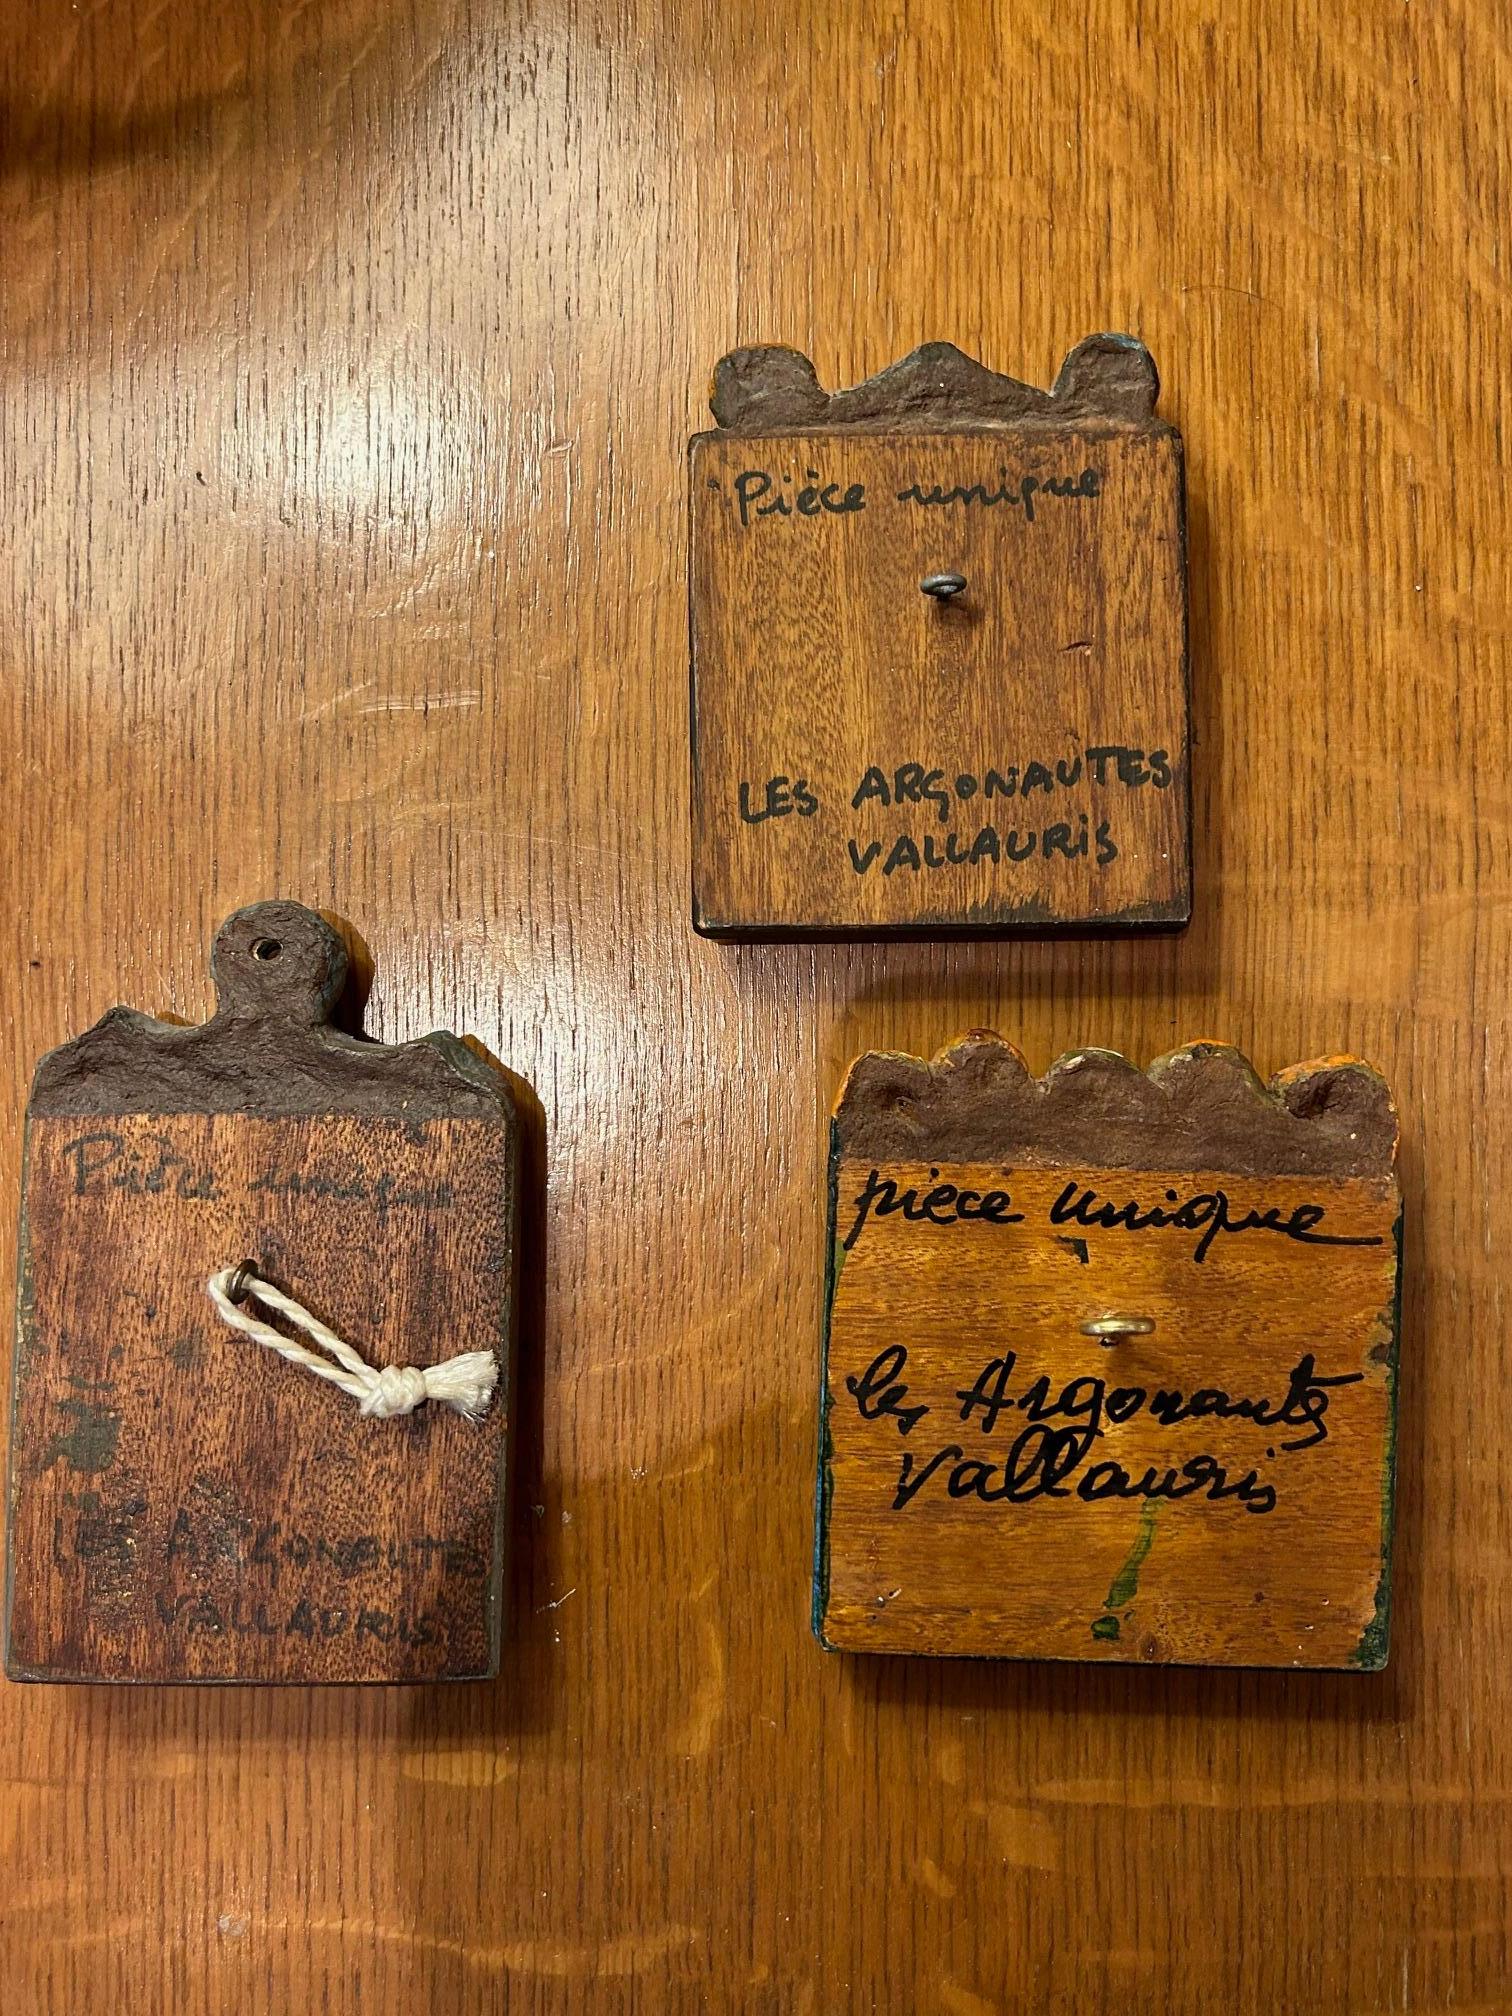 Pièce unique
LES ARGONAUTES
VALLAURIS
Pièce unique
LES ARGONAUTES
VALLAURIS
pièce unique
les Argonautes
Vallauris